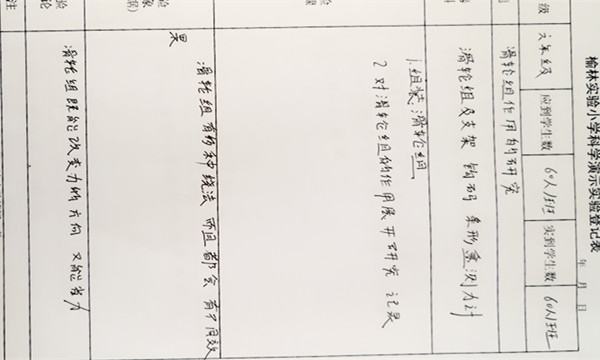 榆林实验小学科学演示实验登记表
年 月 日
级 六年级 应到学生数 60人/班 实到学生数 60人/班
滑轮组作用的研究
滑轮组及支架 钩码 条形测力计
1.组装滑轮组
2 对滑轮组的作用展开研究 记录
滑轮组有多种绕法 而且都会有不同效
果
滑轮组既能改变力的方向 又能省力
注